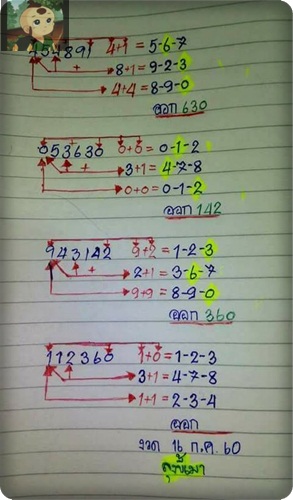 454891 4+1 = 5-6-7
+ 8+1 = 9-2-3
4+4 = 8-9-0
ออก 630
053630 0+0 = 0-1-2
+ 3+1 = 4-7-8
0+0 = 0-1-2
ออก 142
943142 9+2 = 1-2-3
+ 2+1 = 3-6-7
9+9 = 8-9-0
ออก 360
112360 1+0 = 1-2-3
3+1 = 4-7-8
1+1 = 2-3-4
ออก
งวด 16 ก.ค. 60